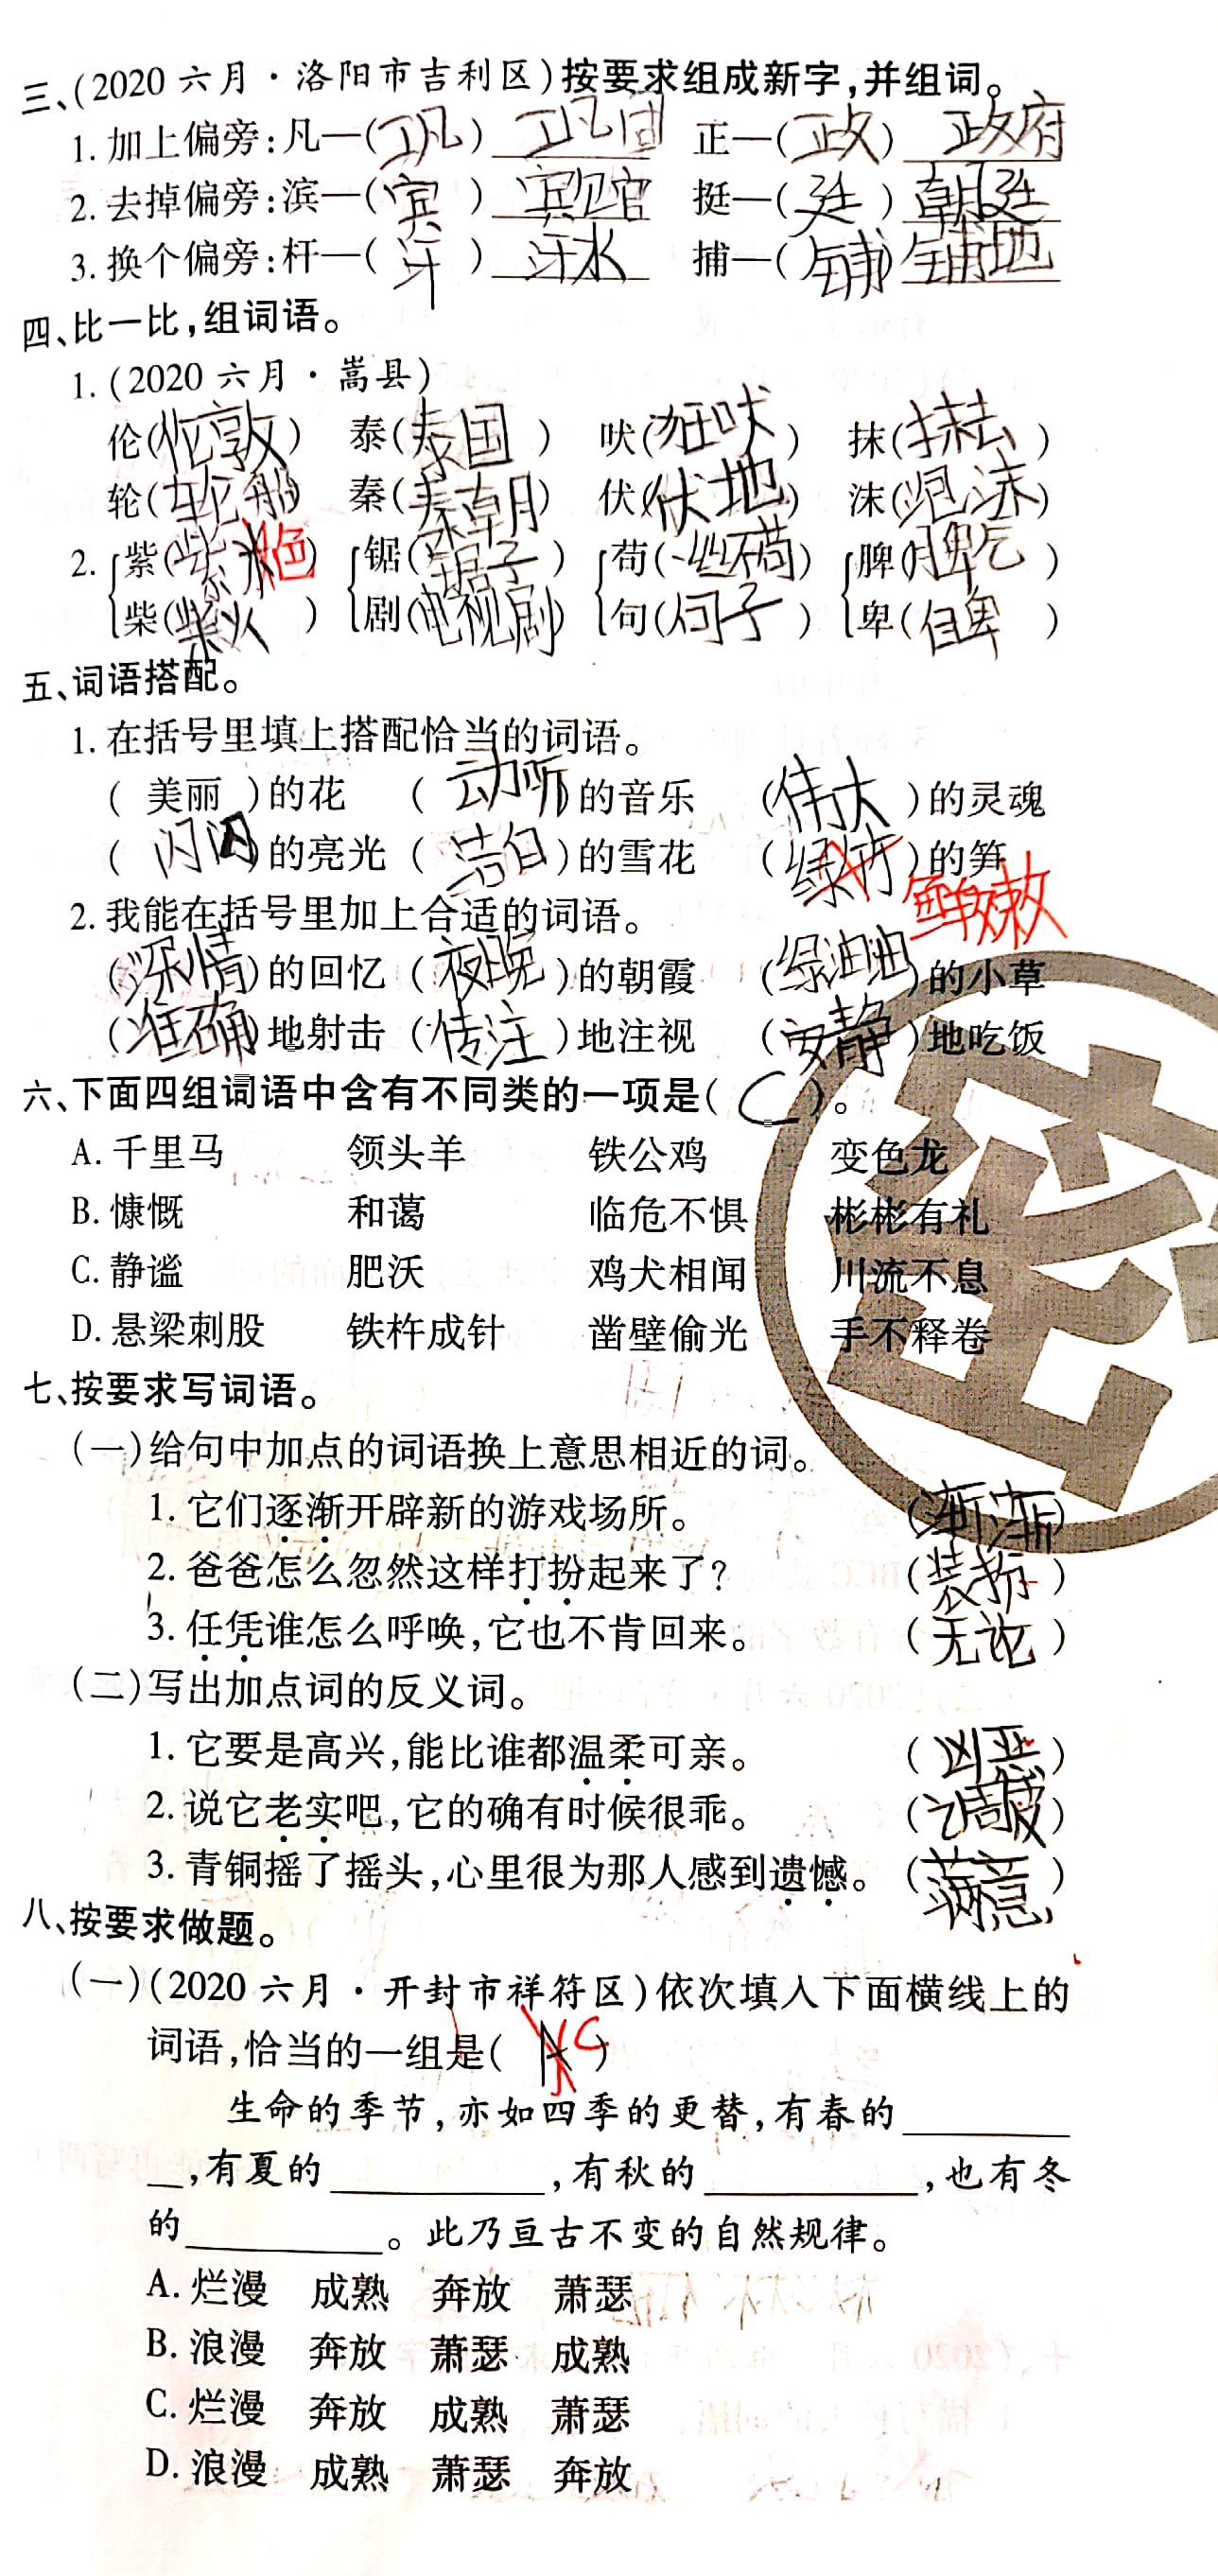 三、(2020 六月·洛阳市吉利区)按要求组成新字,并组词。
1. 加上偏旁:凡—(巩) 巩固 正—(政) 政府
2. 去掉偏旁:滨—(宾) 宾馆 挺—(廷) 朝廷
3. 换个偏旁:杆—(汗) 汗水 捕—(铺) 铺地
四、比一比,组词语。
1. (2020 六月·嵩县)
伦(伦敦) 泰(泰国) 吠(狂吠) 抹(抹去)
轮(轮船) 秦(秦朝) 伏(伏地) 沫(泡沫)
2. 紫(紫色) 锯(锯子) 苟(一丝不苟) 脾(脾气)
柴(柴火) 剧(电视剧) 句(句子) 卑(自卑)
五、词语搭配。
1. 在括号里填上搭配恰当的词语。
( 美丽 )的花 (动听)的音乐 (伟大)的灵魂
(闪闪)的亮光 (洁白)的雪花 (绿)的笋 鲜嫩
2. 我能在括号里加上合适的词语。
(深情)的回忆 (夜晚)的朝霞 (绿油油)的小草
(准确)地射击 (传注)地注视 (安静)地吃饭
六、下面四组词语中含有不同类的一项是( C )。
A. 千里马 领头羊 铁公鸡 变色龙
B. 慷慨 和蔼 临危不惧 彬彬有礼
C. 静谧 肥沃 鸡犬相闻 川流不息
D. 悬梁刺股 铁杵成针 凿壁偷光 手不释卷
七、按要求写词语。
(一)给句中加点的词语换上意思相近的词。
1. 它们逐渐开辟新的游戏场所。 (渐渐)
2. 爸爸怎么忽然这样打扮起来了? (装扮)
3. 任凭谁怎么呼唤,它也不肯回来。 (无论)
(二)写出加点词的反义词。
1. 它要是高兴,能比谁都温柔可亲。 (凶恶)
2. 说它老实吧,它的确有时候很乖。 (调皮)
3. 青铜摇了摇头,心里很为那人感到遗憾。 (满意)
八、按要求做题。
(一)(2020 六月·开封市祥符区)依次填入下面横线上的
词语,恰当的一组是( A C )
生命的季节,亦如四季的更替,有春的
,有夏的 ,有秋的 ,也有冬
的 。此乃亘古不变的自然规律。
A. 烂漫 成熟 奔放 萧瑟
B. 浪漫 奔放 萧瑟 成熟
C. 烂漫 奔放 成熟 萧瑟
D. 浪漫 成熟 萧瑟 奔放